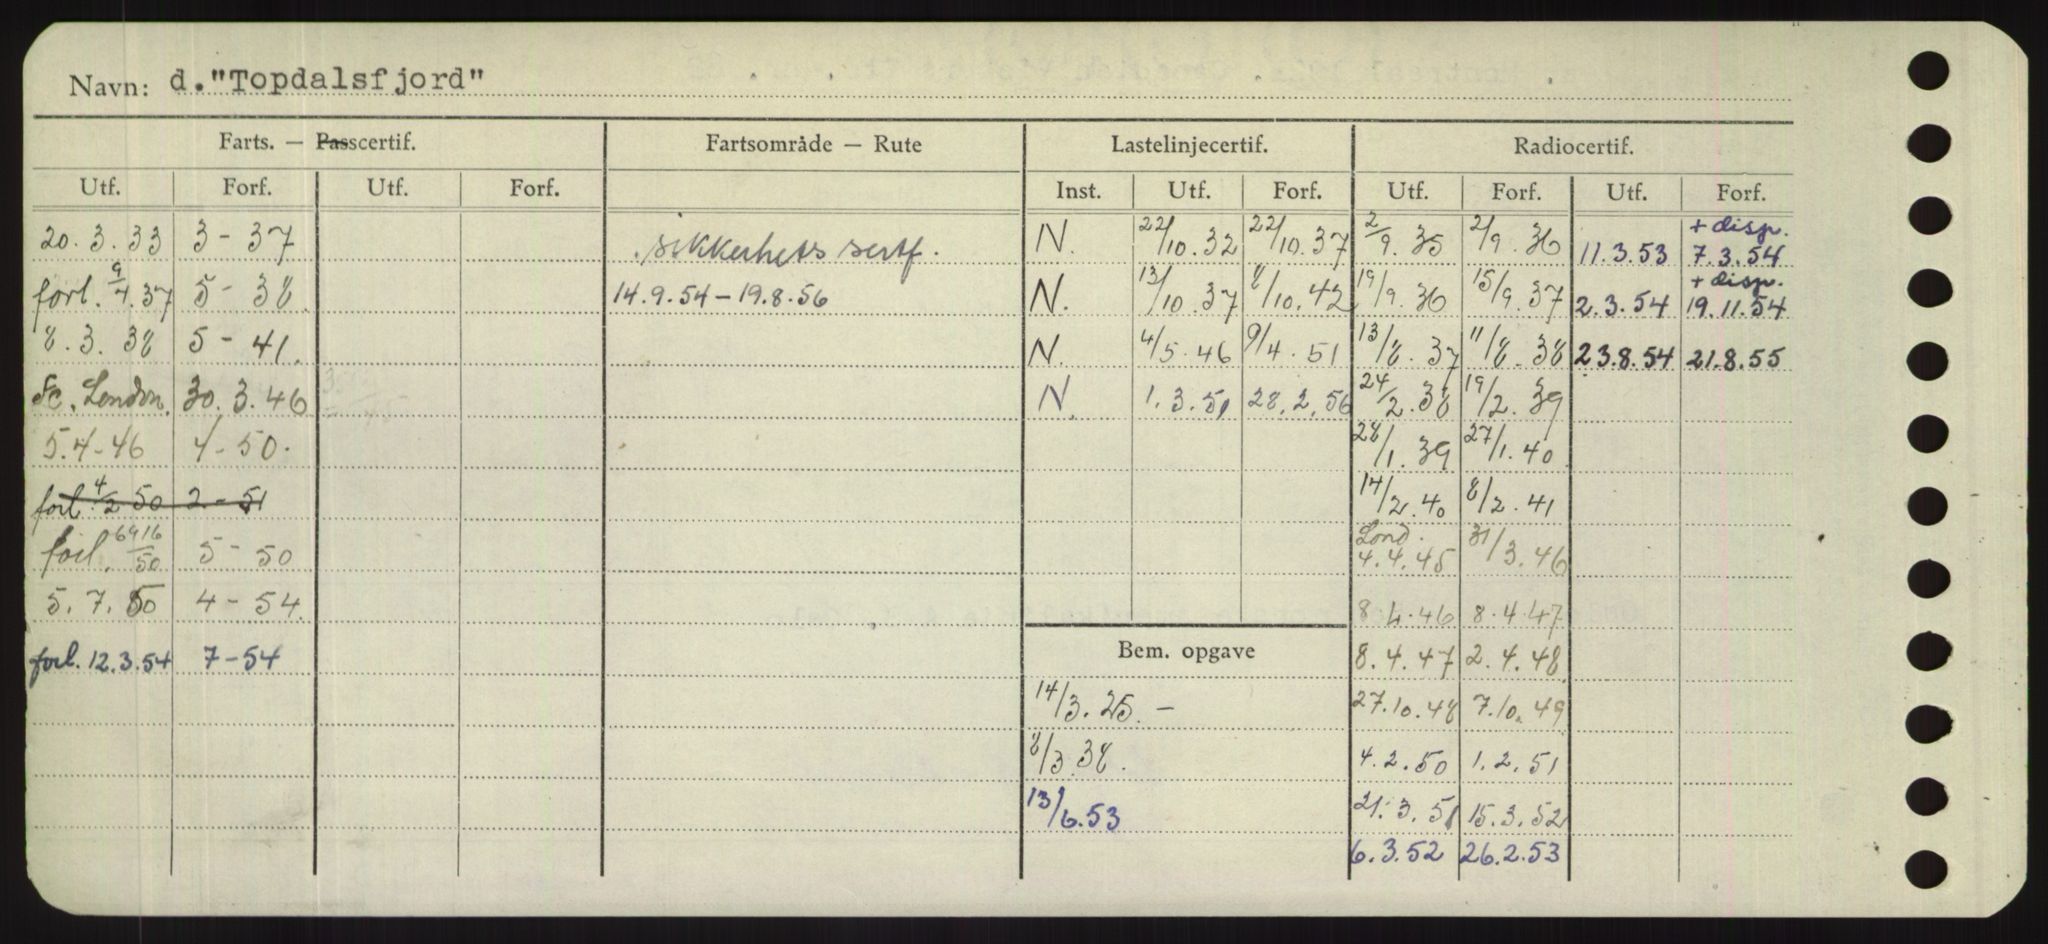 Navn: d."Topdalsfjord"
Farts. — Passcertif. Fartsområde — Rute Lastelinjecertif. Radiocertif.
Utf. Forf. Utf. Forf. Inst. Utf. Forf. Utf. Forf. Utf. Forf.
20.3.33 3-37 sikkerhets sertf. N. 22/10.32 22/10.37 2/9.35 2/9.36 11.3.53 + disp. 7.3.54
forl. 9/4.37 5-38 14.9.54-19.8.56 N. 13/10.37 8/10.42 19/9.36 15/9.37 2.3.54 + disp. 19.11.54
8.3.38 5-41. N. 4/5.46 9/4.51 13/8.37 11/8.38 23.8.54 21.8.55
Fc. London. 30.3.46 N. 1.3.51 28.2.56 24/2.38 19/2.39
5.4-46 4-50. 28/1.39 27/1.40
forl. 4/2 50 2-51 14/2.40 8/2.41
forl. 50 5-50 Lond. 4.4.45 31/3.46
5.7.50 4-54. 8.4.46 8.4.47
forl. 12.3.54 7-54 Bem. opgave 8.4.47 2.4.48
14/3.25.- 27.10.48 7.10.49
8/3.38. 4.2.50 1.2.51
13/6.53 21.3.51 15.3.52
6.3.52 26.2.53